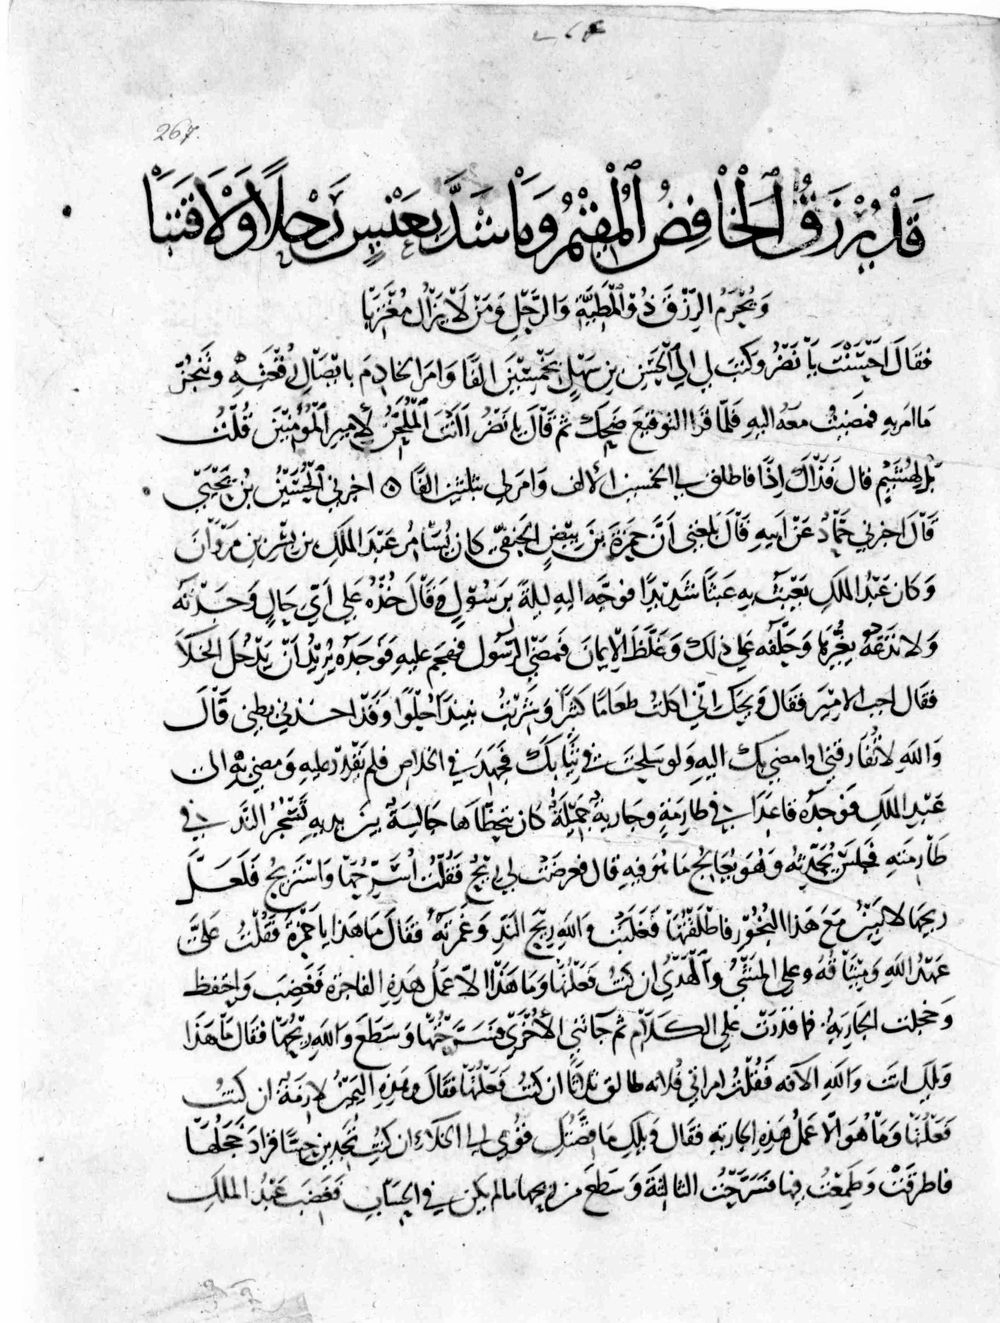 ٢٦٧
267.
قَدْ يُرْزَقُ الْخَافِضُ الْمُقِيمُ وَمَا شَدَّ بِعَنْسٍ رَحْلًا وَلَا قَتَبَا
وَيُحْرَمُ الرِّزْقَ ذُو الْمَطِيَّةِ وَالرَّحْلِ وَمَنْ لَا يَزَالُ مُغْتَرِبَا
فقَالَ احْسَنْتَ يَا نَضْرُ وكَتبَ لي الي الْحَسَنِ بنِ سَهْلٍ بخَمْسِيْنَ الفًا وَامَرَ الخادِمَ بايْصَالِ رُقْعَتِهِ وتَنَجُّزِ
مَا امر بهِ فمضيتُ معَهُ اليهِ فلَمَّا قرَا التوقيعَ ضَحِكَ ثم قَالَ يَا نَضْرُ اانْتَ الْمُلَحِّنُ لأَمِيرِ الْمُؤْمِنِيْنَ قُلْتُ
بَلْ لِهُشَيْمٍ قال فَذَاكَ إِذًا فاطلق لي الخمسين الألف وَامرَ لي بثلثين الفًا ۞ اخبرني الْحُسَيْنُ بنُ يَحْيَى
قَالَ اخبرني حَمَّادُ عَنْ ابيهِ قَالَ بلغني أنَّ حمزةَ بْنَ بِيْضٍ الحَنَفِيَّ كان يُسَامِرُ عَبْدَ المَلكِ بنَ بِشْرِ بنِ مَرْوَانَ
وَكانَ عَبْدُ الملَكِ يَعْبَثُ بهِ عَبَثًا شَدِيْدًا فوَجَّه اليهِ ليلةً برَسُوْلٍ وقَالَ خُذْهُ عَلى أيِّ حَالٍ وَجَدْتَهُ
وَلا تَدَعْهُ يغيرهَا وَحَلَّفَه عَلى ذلكَ وَغَلَّظَ الأَيْمَانَ فَمضَى الرَّسُول فهجم عليهِ فَوَجَدَهُ يُرِيْدُ أنْ يَدْخُلَ الخَلَاءَ
فقَال اجب الامِيْرَ فقَال وَيحكَ انّي اكلتُ طعَامًا كثيرًا وَشربْتُ نبيذًا حُلْوًا وَقَدْ اخذني بطني قَالَ
وَاللهِ لا تُفَارقني او امضي بِكَ اليهِ وَلو سلحتَ في ثِيَابكَ فجَهِدَ في الخلاص فلم يَقْدِرْ عليهِ وَمضى بهِ الى
عَبْدِ الملكِ فوَجدَهُ قاعِدًا في طارمَةٍ وجَاريةٌ جَمِيْلَةٌ كان يتحظَّاهَا جَالِسَةٌ بين يديهِ تَسْجُرُ النَّدَّ في
طَارمتهِ فجلسَ يُحَدِّثهُ وَهُوَ يُعَالِجُ مَا هُوَ فيهِ قالَ فعَرضَتْ لي رِيحٌ فَقُلْتُ اُسَرِّحُهَا وَاسْتَرِيحُ فَلَعَلَّ
ريحَهَا لا يَتَبَيَّنُ مَعَ هَذا البُخُوْرِ فاطْلَقْتُهَا فَغَلَبَتْ وَاللهِ ريْحَ النَّدِّ وَغَمَرَتْهُ فقَالَ مَا هَذا يَا حَمْزَةُ فَقُلْتُ عَلَيَّ
عَهْدُ اللهِ وَمِيْثَاقُهُ وعلي المشْيُ وَالْهَدْيُ ان كنتُ فَعَلْتُهَا وَمَا هَذَا الا عَمَلُ هَذِهِ الفَاجِرةِ فَغَضِبَ وَاحْتفظ
وَخجلت الجَارِيَةُ فمَا قَدَرَتْ عَلى الكَلَامِ ثم جَاءَتْني الأُخْرَى فَسَرَّحْتُهَا وَسَطَعَ وَاللهِ ريْحُهَا فقَال مَا هَذَا
وَيلكَ انت وَاللهِ الآفة فَقُلْتُ امراتي فُلانه طالق ثَلاثًا ان كنتُ فَعَلْتُهَا فقَالَ وَهَذِهِ اليَمِيْنُ لازمَةٌ ان كنتُ
فَعَلْتُهَا وَمَا هُوَ الا عَمَلُ هَذِهِ الجَاريةِ فقال وَيلكِ مَا قصَّتُكِ قومي الي الخَلَاءِ ان كنتِ تَجِدِينَ حِسًّا فزادَ خَجَلُهَا
فاطرقَتْ وَطَمِعْتُ فيهَا فسَرَّحْتُ الثالثةَ وَسَطَعَ من ريحهَا ما لم يكن في الحِسَابِ فغَضِبَ عَبْدُ الملَكِ